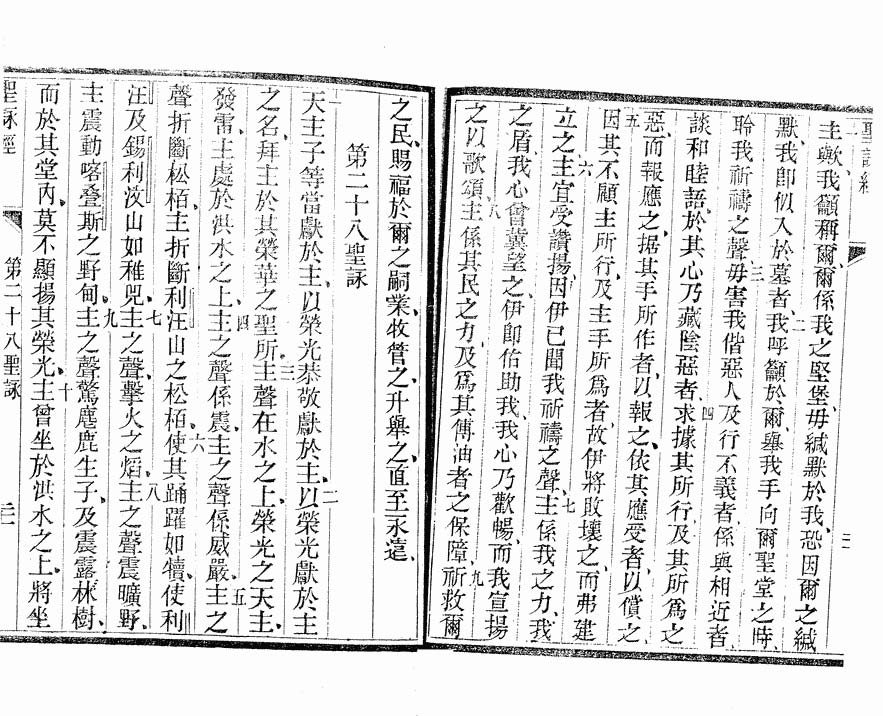 聖詠經
二
主歟、我籲稱爾、爾係我之堅堡、毋緘默於我、恐因爾之緘
默、我卽似入於墓者、二我呼籲於爾、舉我手向爾聖堂之時、
聆我祈禱之聲、三毋害我偕惡人及行不義者、係與相近者、
談和睦語、於其心乃藏陰惡者、四求據其所行及其所爲之
惡、而報應之、据其手所作者、以報之、依其應受者、以償之、
五因其不顧主所行、及主手所爲者、故伊將敗壞之、而弗建
立之、六主宜受讚揚、因伊已聞我祈禱之聲、七主係我之力、我
之盾、我心曾冀望之、伊卽佑助我、我心乃歡暢、而我宣揚
之以歌頌、八主係其民之力、及爲其傅油者之保障、九祈救爾
之民、賜福於爾之嗣業、牧管之、升舉之、直至永遠、
第二十八聖詠
一天主子等當獻於主、以榮光恭敬獻於主、二以榮光獻於主
之名、拜主於其榮華之聖所、三主聲在水之上、榮光之天主、
發雷、主處於洪水之上、四主之聲係震、主之聲係威嚴、五主之
聲折斷松栢、主折斷利汪山之松栢、六使其踊躍如犢、使利
汪及錫利汝山如稚兕、七主之聲、擊火之熖、八主之聲震曠野、
主震動喀疊斯之野甸、九主之聲驚麀鹿生子、及震露林樹、
而於其堂內、莫不顯揚其榮光、十主曾坐於洪水之上、將坐
聖詠經
第二十八聖詠